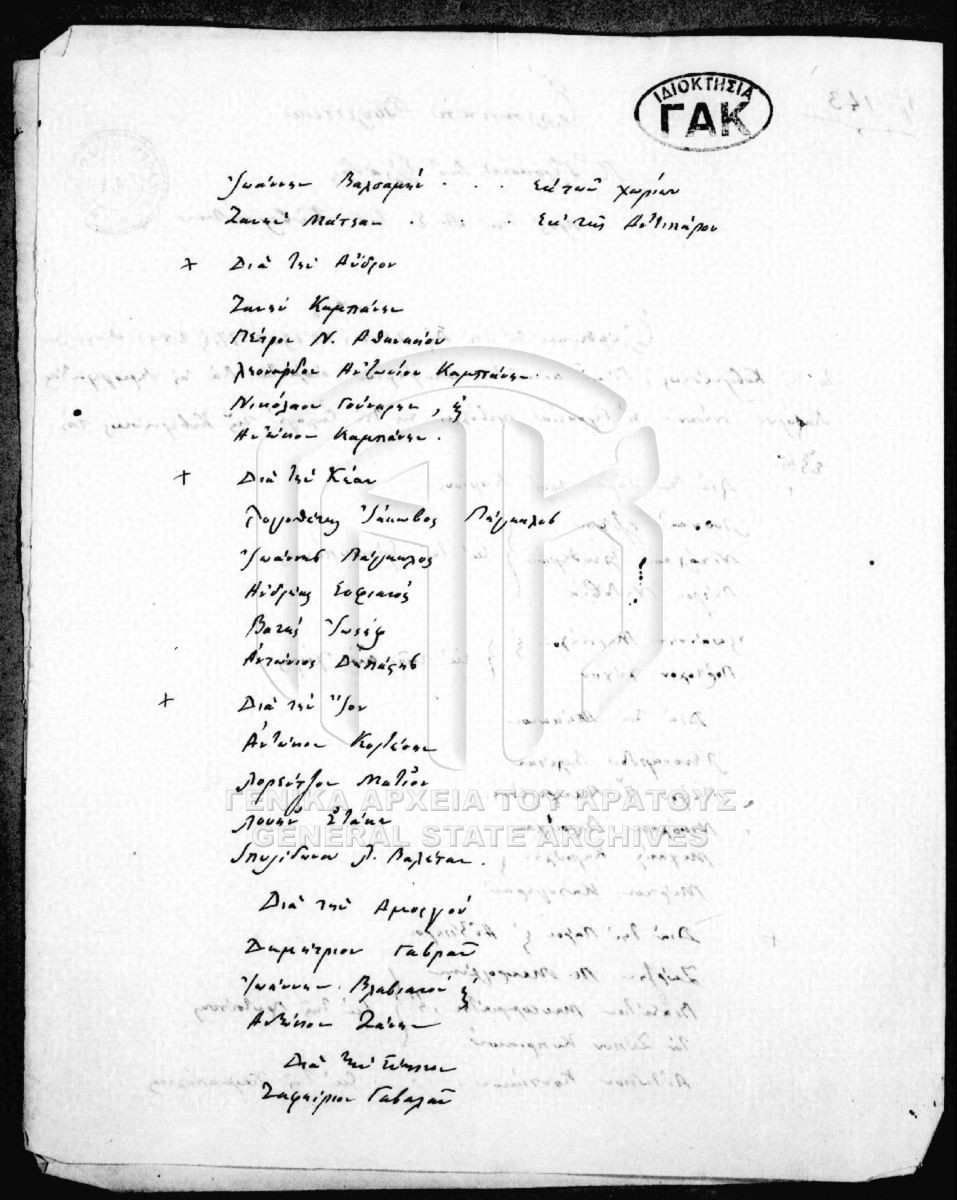 ΙΔΙΟΚΤΗΣΙΑ
ΓΑΚ
Ἰωάννην Βαλσαμὴν . . . ἐκ τῶν χωρίων
Ζαννῆν Μάτσαν . . . ἐκ τῆς Ἀντιπάρου
+ Διὰ τὴν Ἄνδρον
Ζαννῆν Καμπάνην
Πέτρον Ν. Ἀθανασίου
Λεονάρδον Ἀντωνίου Καμπάνην
Νικόλαον Γούναρην, ξ
Ἀντώνιον Καμπάνην.
+ Διὰ τὴν Κέαν
Λογοθέτης Ἰάκωβος Πάγκαλος
Ἰωάννης Πάγκαλος
Ἀνδρέας Σοφιανός
Βατῆς Ἰωσήφ
Ἀντώνιος
+ Διὰ τὴν Ἴον
Ἀντώνιον Κορτέσην
Λορέντζον Ματζου
Λουκῆν
Σπυρίδωνα Λ. Βαλέταν.
Διὰ τὴν Ἀμοργόν
Δημήτριον Γαβρᾶν
Ἰωάννην Βλαβιανόν ξ
Ἀντώνιον Ζάνην
Διὰ τὴν
Ζαφείριον Γαβαλᾶν
ΓΕΝΙΚΑ ΑΡΧΕΙΑ ΤΟΥ ΚΡΑΤΟΥΣ
GENERAL STATE ARCHIVES